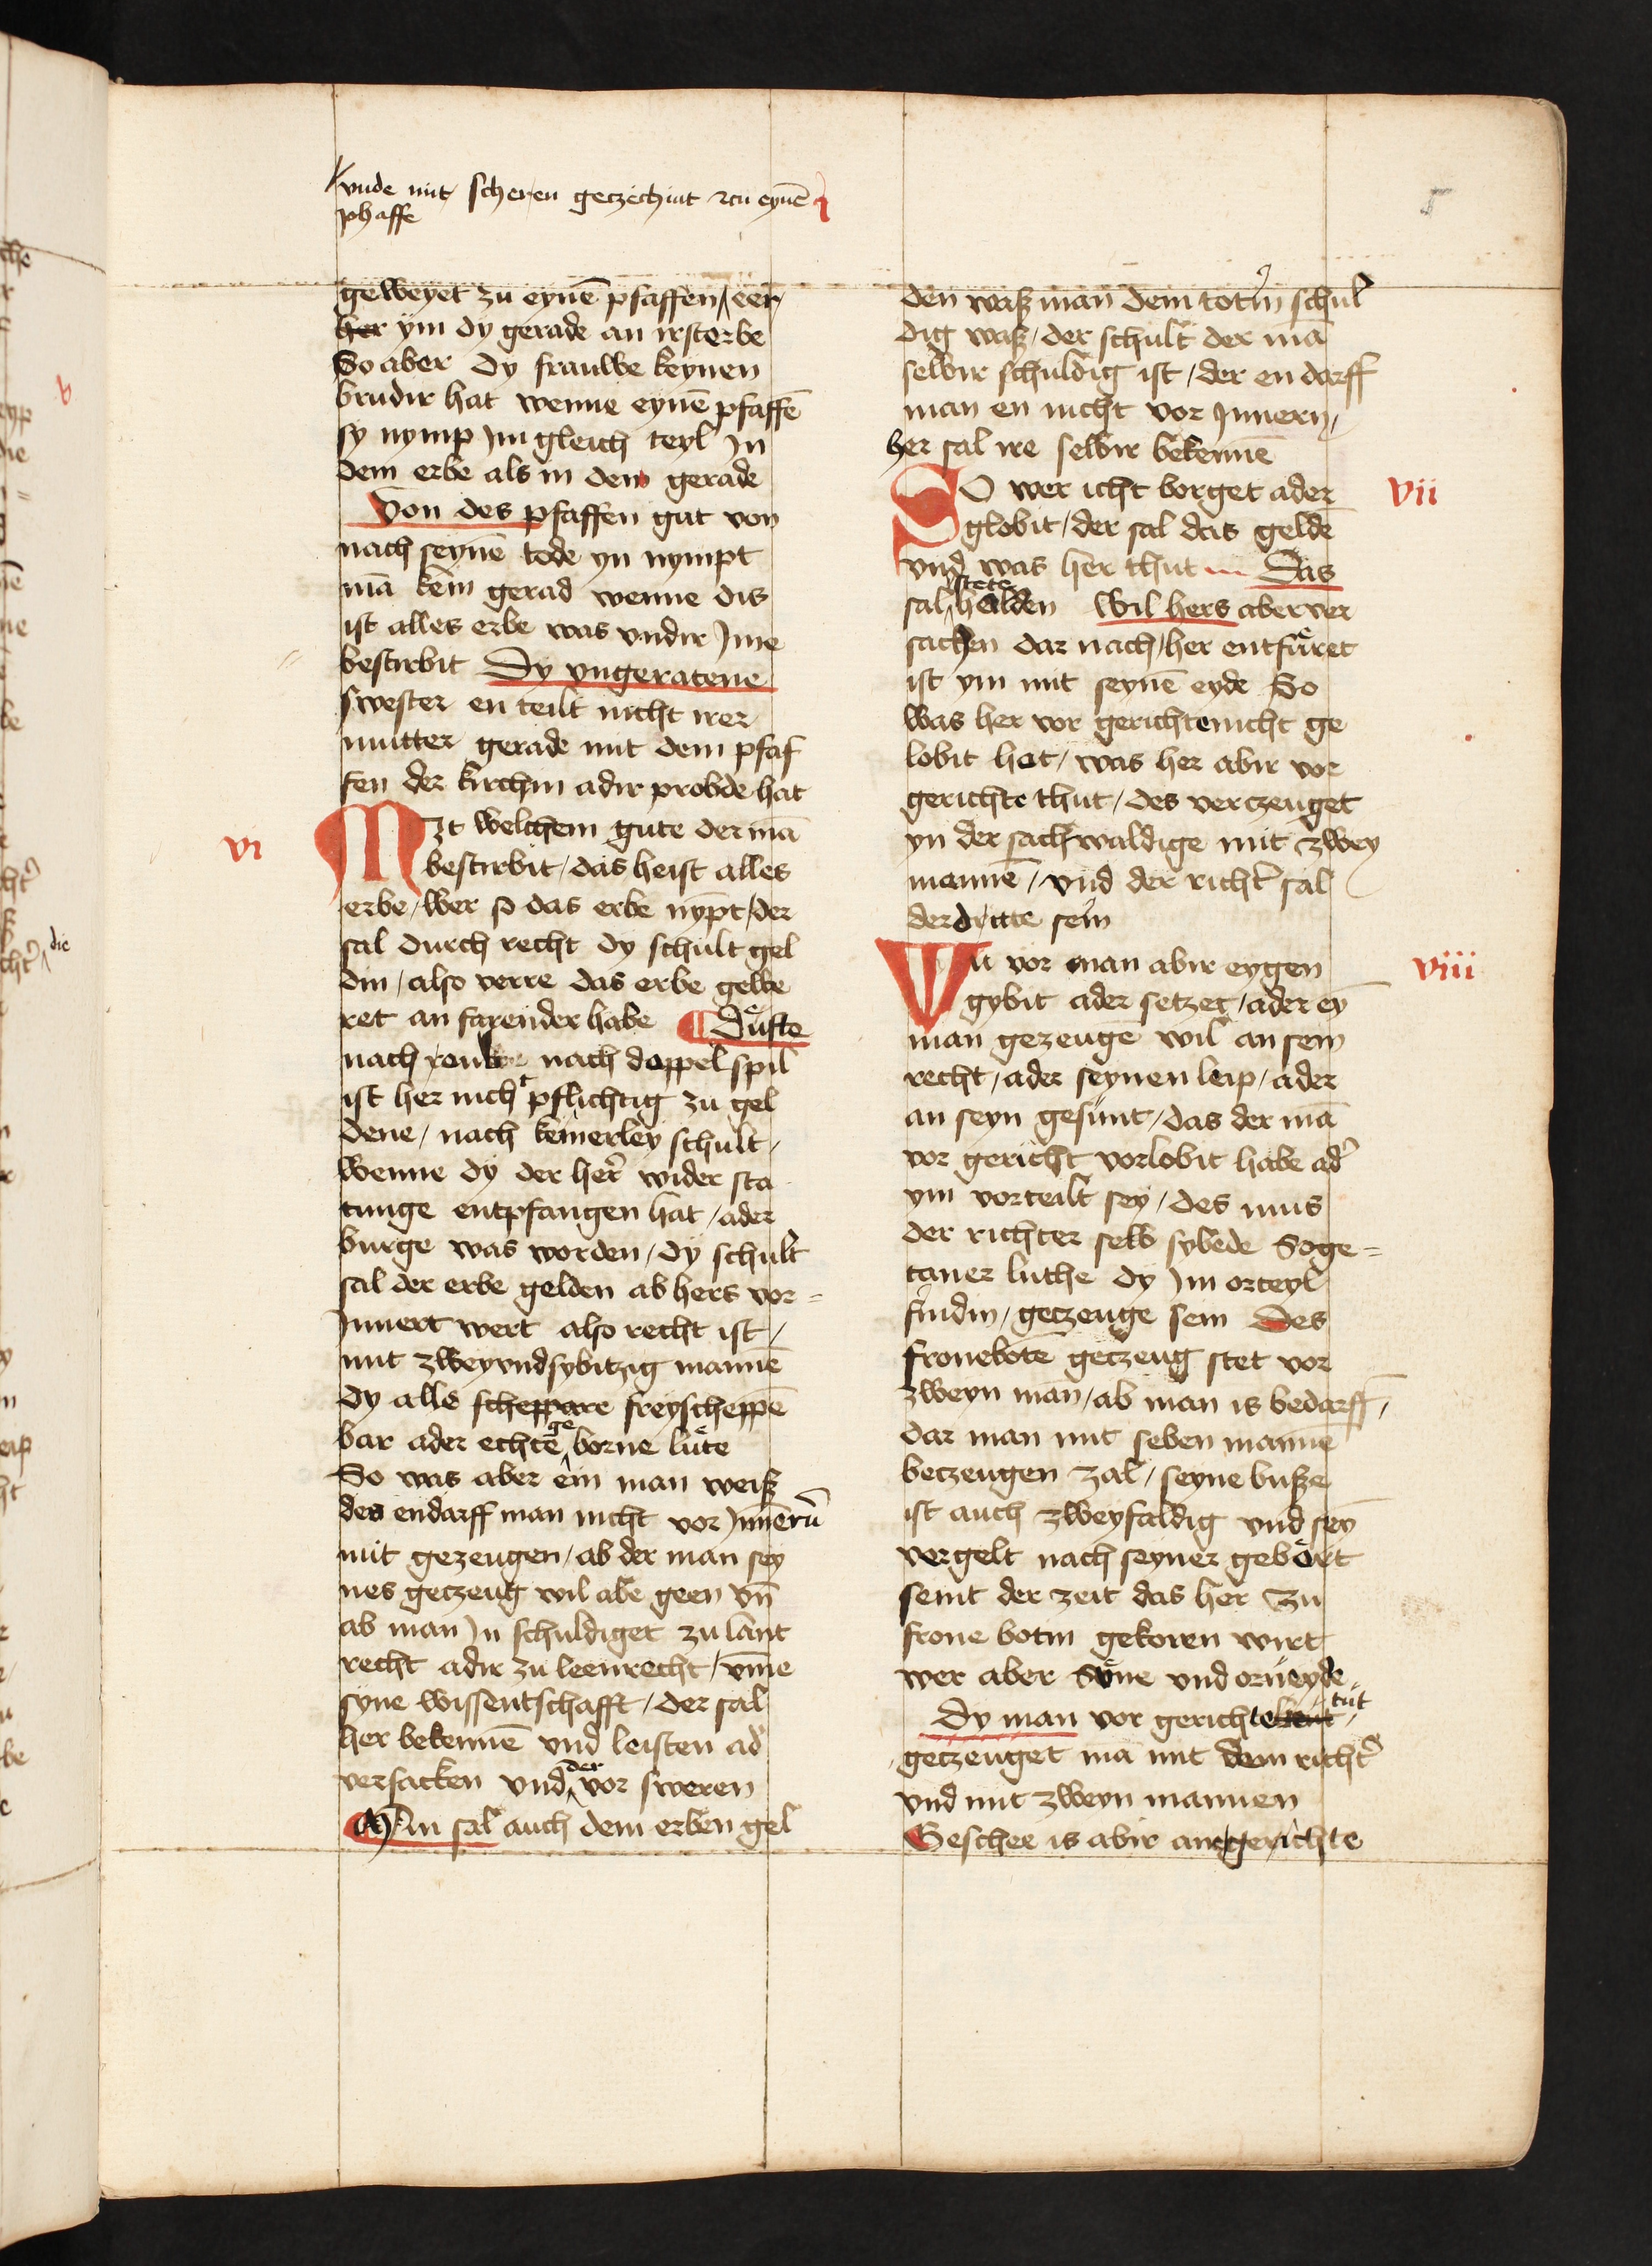 vnde mit scheren geczechint zcu eynē
phaffe
5
geweyet zu eynē pfaffen eer
her ym dy gerade an irsterbe
So aber dy frauwe keynen
brudir hat wenne eynē pfaffē
sy nymp Jm gleich teyl Jn
dem erbe als in dem gerade
Von des pfaffen gut von
nach seynē tode yn nympt
mā kein gerad wenne dis
ist alles erbe was vndir Jme
bestirbit Dy vngeratene
swester en teilt nicht irer
mutter gerade mit dem pfaf
fen der kirchin adir probde hat
vi
Mzt welchem gute der mā
bestirbit / das heist alles
erbe / wer so das erbe nȳpt / der
sal durch recht dy schult gel
din / also verre das erbe gewe
ret an farender habe Dufte
nach roube nach doppel spil
ist her nicht pflichtig zu gel
dene / nach keinerley schult /
wenne dy der her wider sta
tunge entpfangen hat / ader
burge was worden / dy schult
sal der erbe gelden ab hers vor=
Jnnert wert also recht ist /
mit zweyvndsybitzig mannē
dy alle scheppare freyscheppē
bar ader echte ge borne lute
So was aber ein man weiß
des endarff man nicht vor Jnnerñ
mit gezeugen / ab der man sey
nes geczeug wil abe geen vn̄
ab man Jn schuldiget zu lant
recht adir zu leenrecht / vm̄e
syne wissentschafft / der sal
her bekennē vnd leisten ad'
versacken vnd der vor sweren
Man sal auch dem erben gel
den waß man dem totin schul
dig waß / der schult der mā
selbir schuldig ist / der en darff
man en nicht vor Jnnern /
her sal ire selbir bekennē
vii
SO wer icht borget ader
globit / der sal das geldē
vnd was her thut Das
sal stete halden Wil hers aber ver
sachen dar nach / her entfuret
ist ym mit seynē eyde So
was her vor gerichte nicht ge
lobit hat / was her abir vor
gerichte thut / des verczeuget
yn der sachwaldige mit zwey
mannē / vnd der richt' sal
der dritte sein
viii
Wu vor man abir eygen
gybit ader setzet / ader ey̅
man gezeuge wil an sein
recht / ader seynen leip / ader
an seyn gesunt / das der mā
vor gericht vorlobit habe ad'
ym vorteilt sey / des mus
der richter selb sybede Soge=
taner luthe dy Jm orteyl
findin / geczeuge sein Des
fronebotē geczeug stet vor
zweyn man / ab man is bedarff /
dar man mit seben mannē
beczeugen zal / seyne buße
ist auch zweyfaldig vnd sey̅
vergelt nach seyner gebort
seint der zeit das her zu
frone botin gekoren wirt
wer aber Sone vnd orueyde
Dy man vor gerichte tut
geczeuget mā mit dem richt'
vnd mit zweyn mannen
Geschee is abir an gerichte